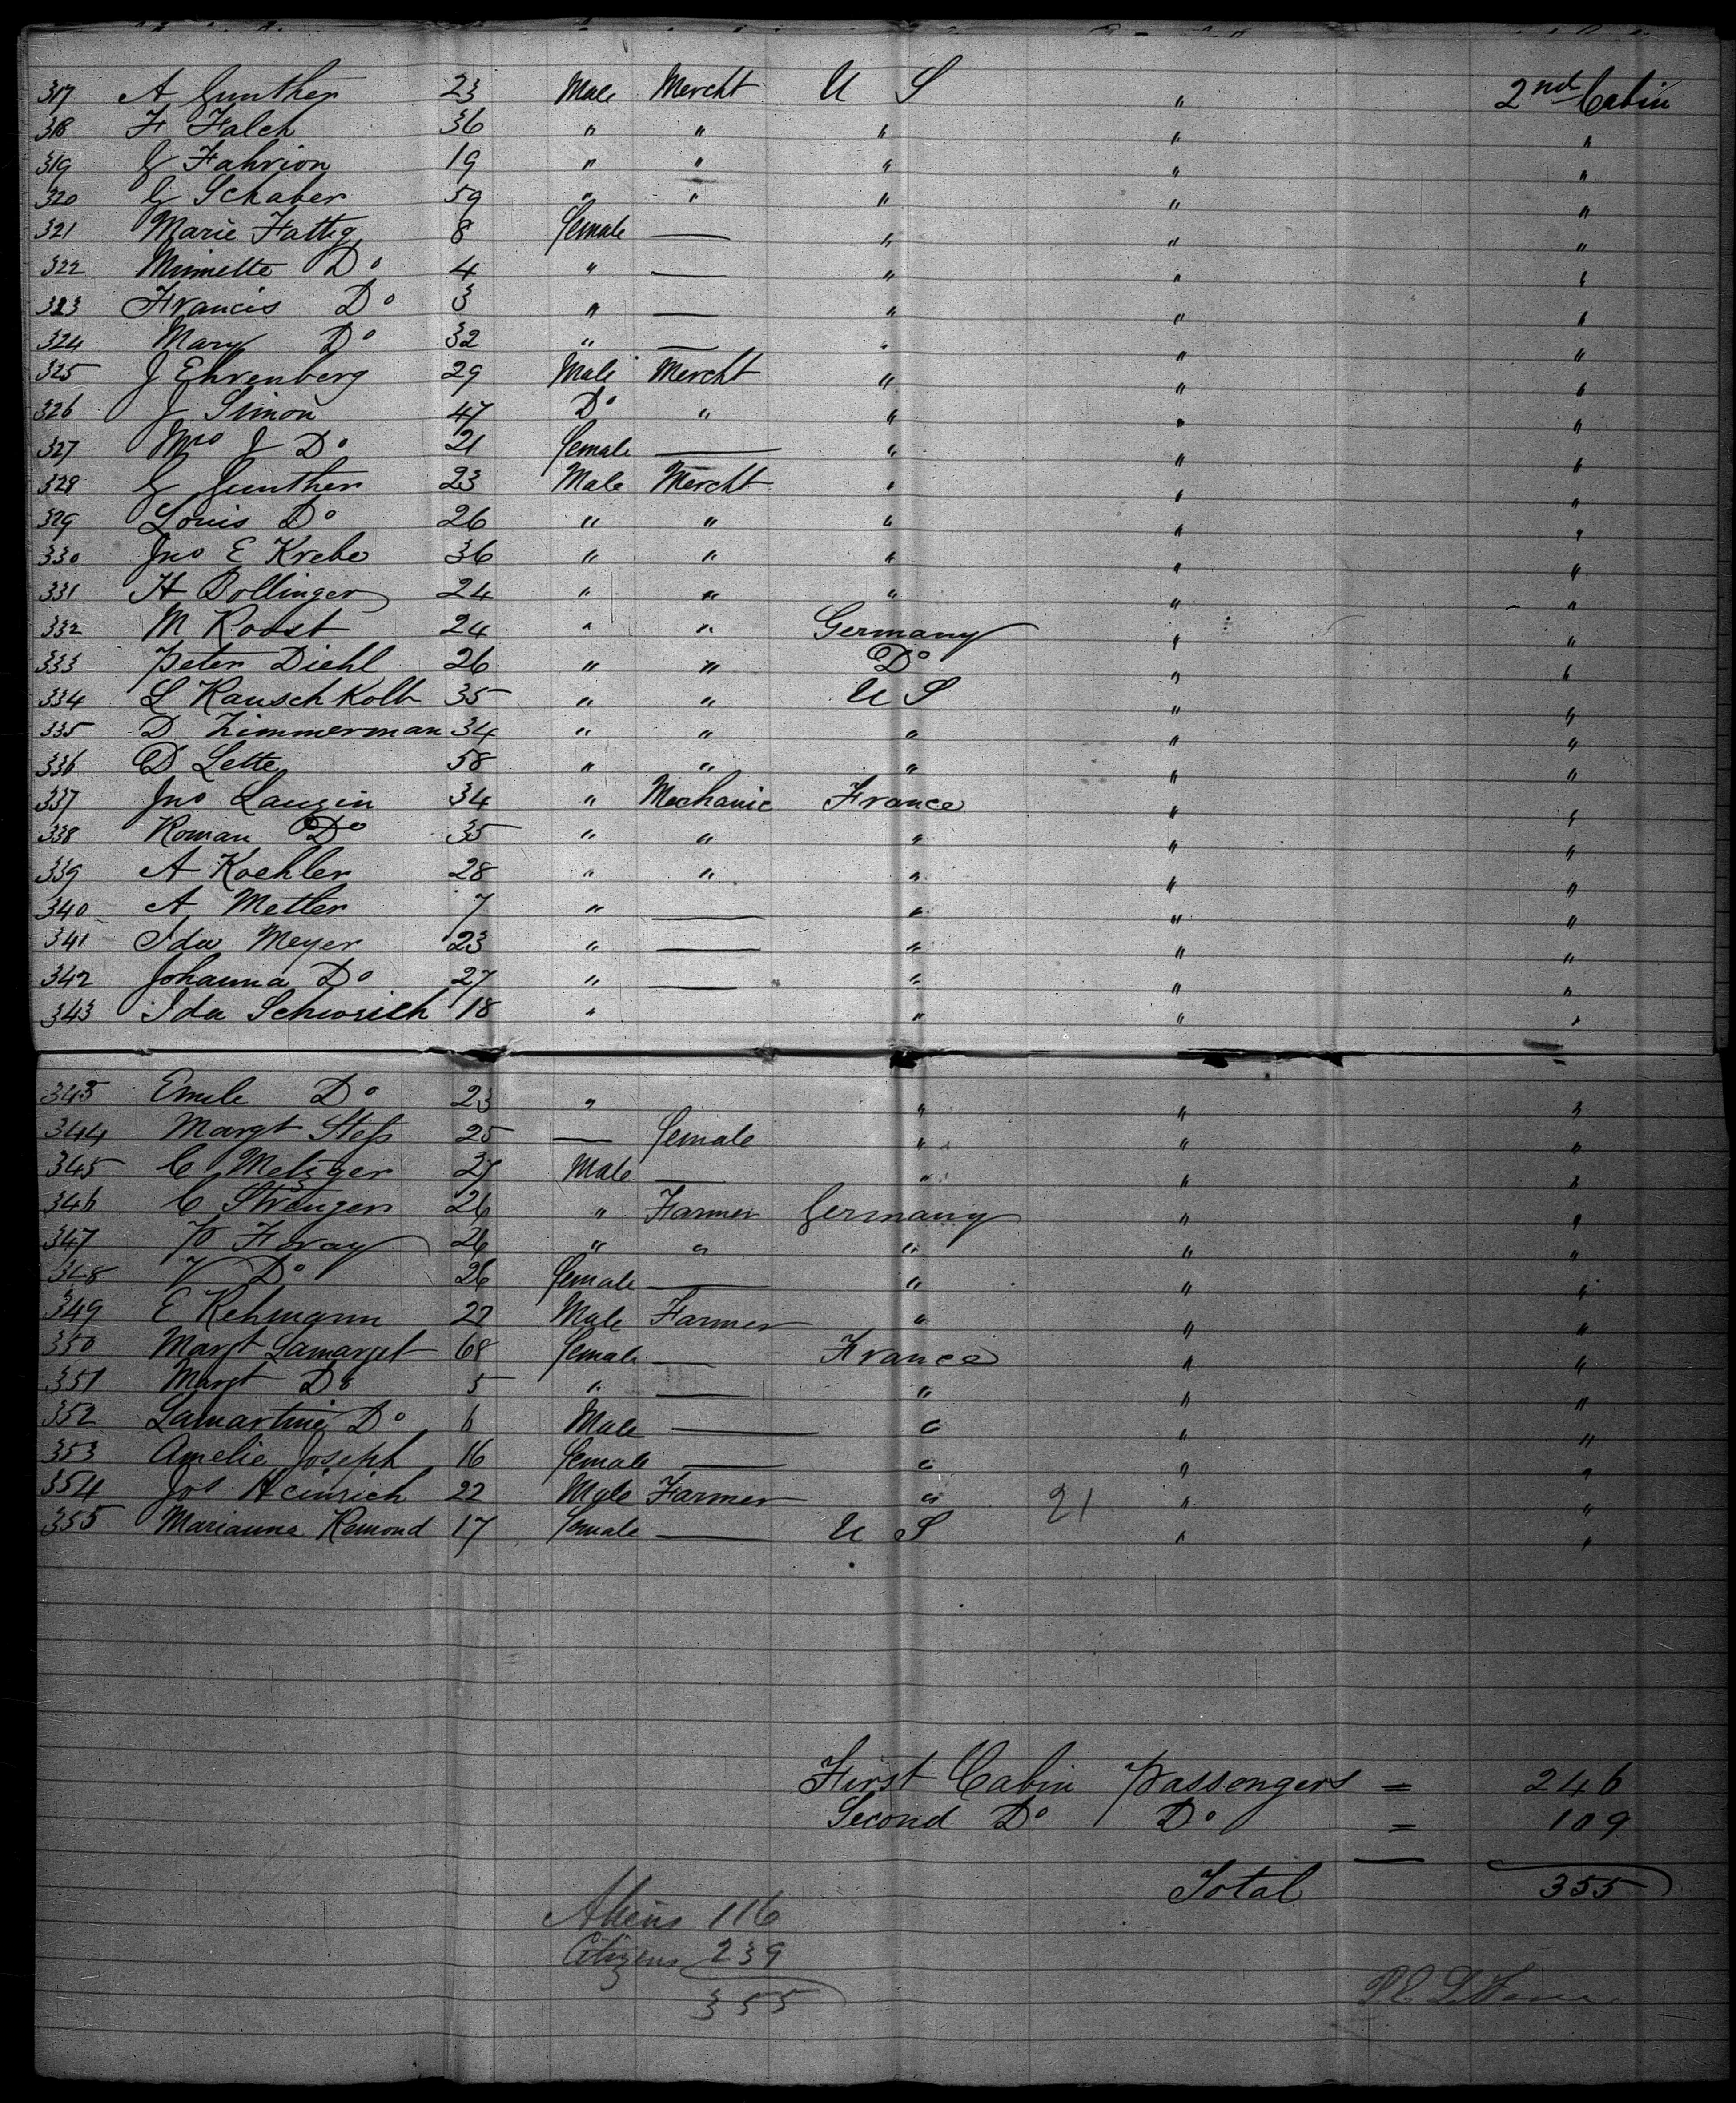 317 A Gunther 23 Male Mercht U S " 2nd Cabin
318 F Falch 36 " " " " "
319 G Fahrion 19 " " " " "
320 G Schaber 59 " " " " "
321 Marie Fattig 8 female — " " "
322 Minnette Do 4 " — " " "
323 Francis Do 3 " — " " "
324 Mary Do 32 " — " " "
325 J Ehrenberg 29 Male Mercht " " "
326 J Simon 47 Do " " " "
327 Mrs J Do 21 female — " " "
328 G Gunther 23 Male Mercht " " "
329 Louis Do 26 " " " " "
330 Jno E Krebs 36 " " " " "
331 H Bollinger 24 " " " " "
332 M Roost 24 " " Germany " "
333 Peter Diehl 26 " " Do " "
334 L Rauschkolb 35 " " U S " "
335 D Zimmerman 34 " " " " "
336 D Lette 58 " " " " "
337 Jno Lauzin 34 " Mechanic France " "
338 Roman Do 35 " " " " "
339 A Koehler 28 " " " " "
340 A Metler 7 " — " " "
341 Ida Meyer 23 " — " " "
342 Johanna Do 27 " — " " "
343 Ida 18 " " " "
343 Emile Do 23 " " " "
344 Margt Stefs 25 — female " " "
345 C Metzger 27 Male — " " "
346 C Strenger 26 " Farmer Germany " "
347 Foray 26 " " " " "
348 V Do 26 female — " " "
349 E Rehmann 22 Male Farmer " " "
350 Margt Lamarget 68 female — France " "
351 Margt Do 5 " — " " "
352 Lamartine Do 6 Male — " " "
353 Amelie Joseph 16 female — " " "
354 Jos Heinrich 22 Male Farmer " 21 " "
355 Marianne Remond 17 female — U S " "
First Cabin Passengers = 246
Second Do Do = 109
Total 355
Aliens 116
Citizens 239
355